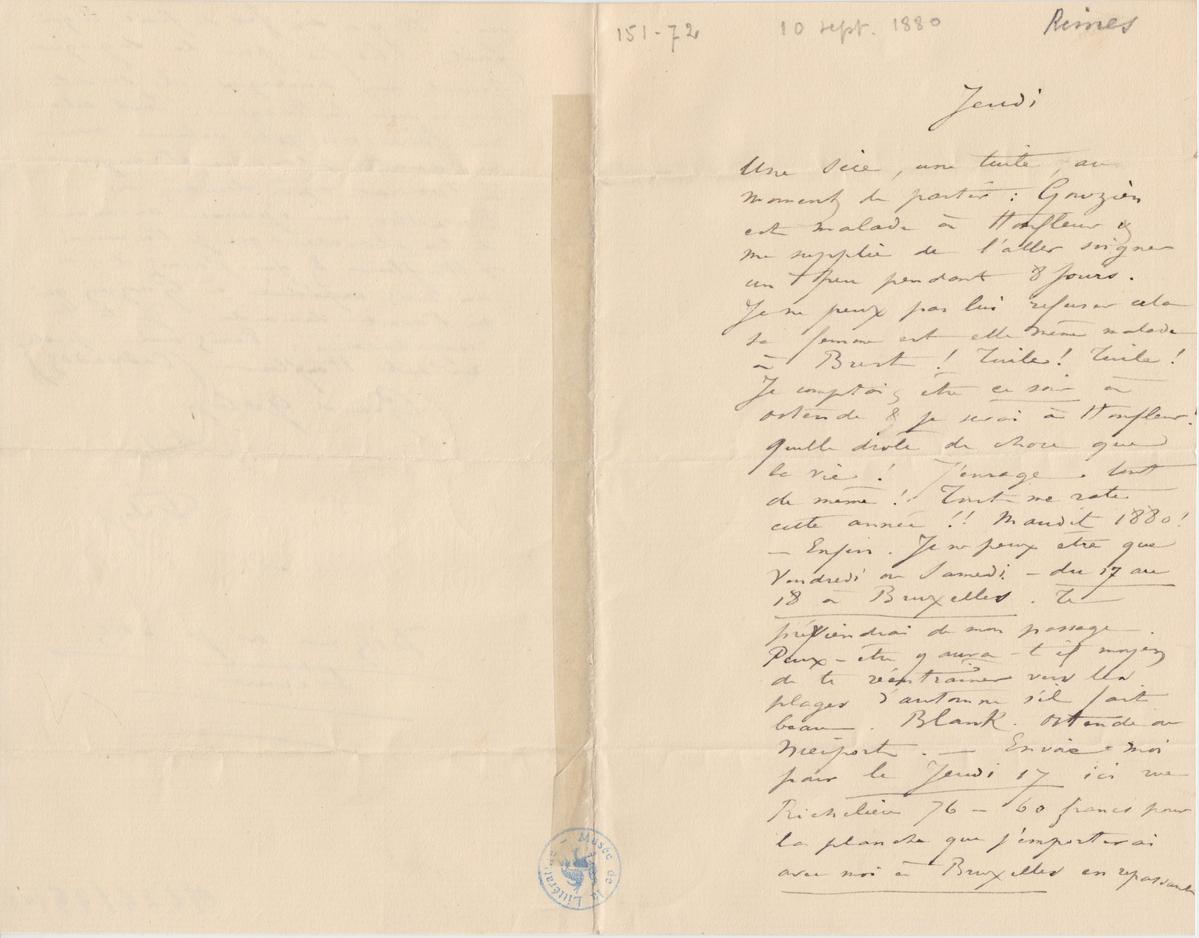 151-72 10 sept. 1880 Rimes
Jeudi
Une scie, une tuile, au
moment de partir : Gouzien
est malade à Honfleur &
me supplie de l'aller soigner
un peu pendant 8 jours.
Je ne peux pas lui refuser cela
sa femme est elle même malade
à Brest ! Tuile ! Tuile !
Je comptais être ce soir à
ostende & je serai à Honfleur !
quelle drole de chose que
la vie ! J'enrage tout
de même ! Tout me rate
cette année !! Maudit 1880 !
— Enfin. Je ne peux être que
Vendredi ou Samedi – du 17 au
18 à Bruxelles. Te
préviendrai de mon passage.
Peux-être y aura-t-il moyen
de te réentrainer vers les
plages d'automne s'il fait
beau. Blank. Ostende ou
Nieuport. — Envoie moi
pour le Jeudi 17 ici rue
Richelieu 76 — 60 francs pour
la planche que j'emporterai
avec moi à Bruxelles en repassant
Musée de la Littérature